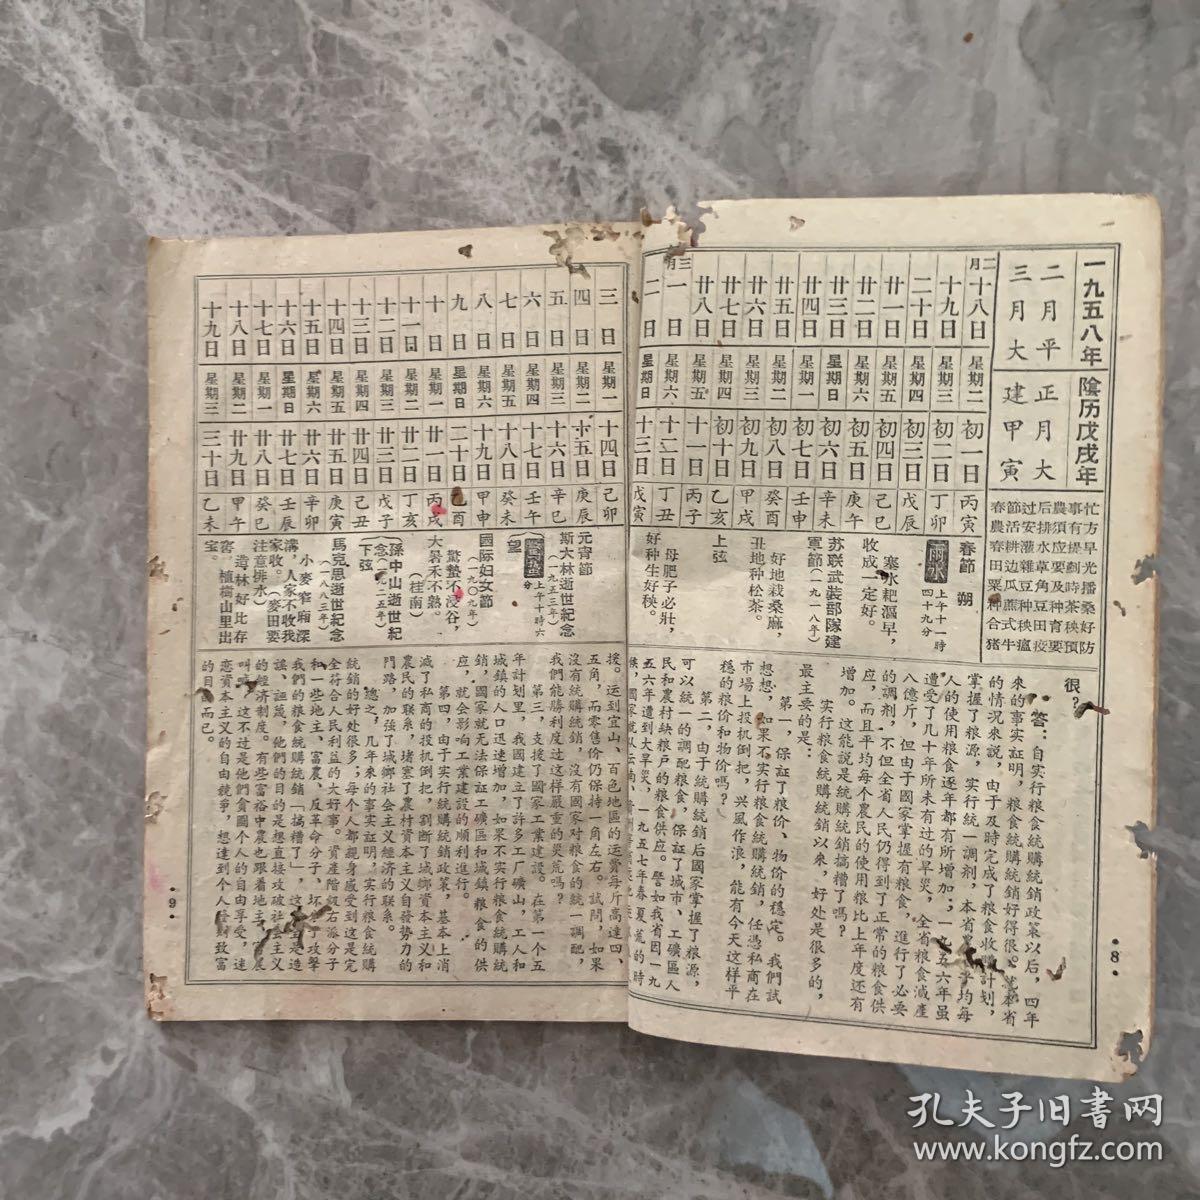 一九五八年 陰历戊戌年
二月平
三月大
正月大
建甲寅
二月十八日 星期二 初一日 丙寅 春節 朔
十九日 星期三 初二日 丁卯 雨水 上午十一時四十九分
二十日 星期四 初三日 戊辰
廿一日 星期五 初四日 己巳
廿二日 星期六 初五日 庚午
廿三日 星期日 初六日 辛未
廿四日 星期一 初七日 壬申
廿五日 星期二 初八日 癸酉
廿六日 星期三 初九日 甲戌
廿七日 星期四 初十日 乙亥
廿八日 星期五 十一日 丙子
三月一日 星期六 十二日 丁丑
二日 星期日 十三日 戊寅
寒水耙漚早，
收成一定好。
苏联武裝部隊建
軍節(一九一八年)
好地栽桑麻，
丑地种松茶。
上弦
母肥子必壯，
好种生好秧。
很？
答：自实行粮食統購統銷政策以后，四年
来的事实証明，粮食統購統銷好得很。就本省
的情况来說，由于及時完成了粮食收購計划，
掌握了粮源，实行統一調剂，本省農民平均每
人的使用粮食逐年都有所增加；一九五六年虽
遭受了几十年所未有过的旱災，全省粮食減產
八億斤，但由于國家掌握有粮食，進行了必要
的調剂，不但全省人民仍得到了正常的粮食供
应，而且平均每个農民的使用粮比上年度还有
增加。这能說是統購統銷搞糟了嗎？
实行粮食統購統銷以来，好处是很多的，
最主要的是：
第一，保証了粮价、物价的穩定。我們試
想想，如果不实行粮食統購統銷，任憑私商在
市場上投机倒把，兴風作浪，能有今天这样平
穩的粮价和物价嗎？
第二，由于統購統銷后國家掌握了粮源，
可以統一的調配粮食，保証了城市、工礦區人
民和農村缺粮戶的粮食供应。譬如我省因一九
五六年遭到大旱災，一九五七年春夏荒的時
·8·
三日 星期一 十四日 己卯
四日 星期二 十五日 庚辰 元宵節
五日 星期三 十六日 辛巳 斯大林逝世紀念(一九五三年)
六日 星期四 十七日 壬午 上午十時六分
七日 星期五 十八日 癸未 望
八日 星期六 十九日 甲申 國际妇女節(一九〇九年)
九日 星期日 二十日 乙酉
十日 星期一 廿一日 丙戌
十一日 星期二 廿二日 丁亥
十二日 星期三 廿三日 戊子 孫中山逝世紀念(一九二五年)
十三日 星期四 廿四日 己丑 下弦
十四日 星期五 廿五日 庚寅 馬克思逝世紀念(一八八三年)
十五日 星期六 廿六日 辛卯
十六日 星期日 廿七日 壬辰
十七日 星期一 廿八日 癸巳
十八日 星期二 廿九日 甲午
十九日 星期三 三十日 乙未
驚蟄不浸谷，
大暑禾不熟。
(桂南)
小麥窄廂深
溝，人家不收我
家收。(麥田要
注意排水)
造林好比存
窖，植樹山里出
宝。
援。运到宜山、百色地區的运費每斤高達四、
五角，而零售价仍保持一角左右。試問，如果
沒有統購統銷，沒有國家对粮食的統一調配，
我們能勝利度过这样嚴重的災荒嗎？
第三，支援了國家工業建設。在第一个五
年計划里，我國建立了許多工厂礦山，工人和
城鎮的人口迅速增加，如果不实行粮食統購統
銷，國家就无法保証工礦區和城鎮粮食的供
应，就会影响工業建設的順利進行。
第四，由于实行統購統銷政策，基本上消
滅了私商的投机倒把，割断了城鄉資本主义和
農民的联系，堵塞了農村資本主义自發势力的
門路，加强了城鄉社会主义經济的联系。
總之，几年来的事实証明，实行粮食統購
統銷的好处很多；每个人都親身感受到这是完
全符合人民利益的大好事。資產階級右派分子
和一些地主、富農、反革命分子、坏分子攻擊
我們的粮食統購統銷「搞糟了」，这完全是造
謠、誣蔑，他們的目的是想直接攻破社会主义
的經济制度。有些富裕中農也跟着地主、富農
叫喊，这不过是他們貪圖个人的自由享受，迷
恋資本主义的自由競爭，想達到个人發財致富
的目的而已。
·9·
孔夫子旧書网
www.kongfz.com